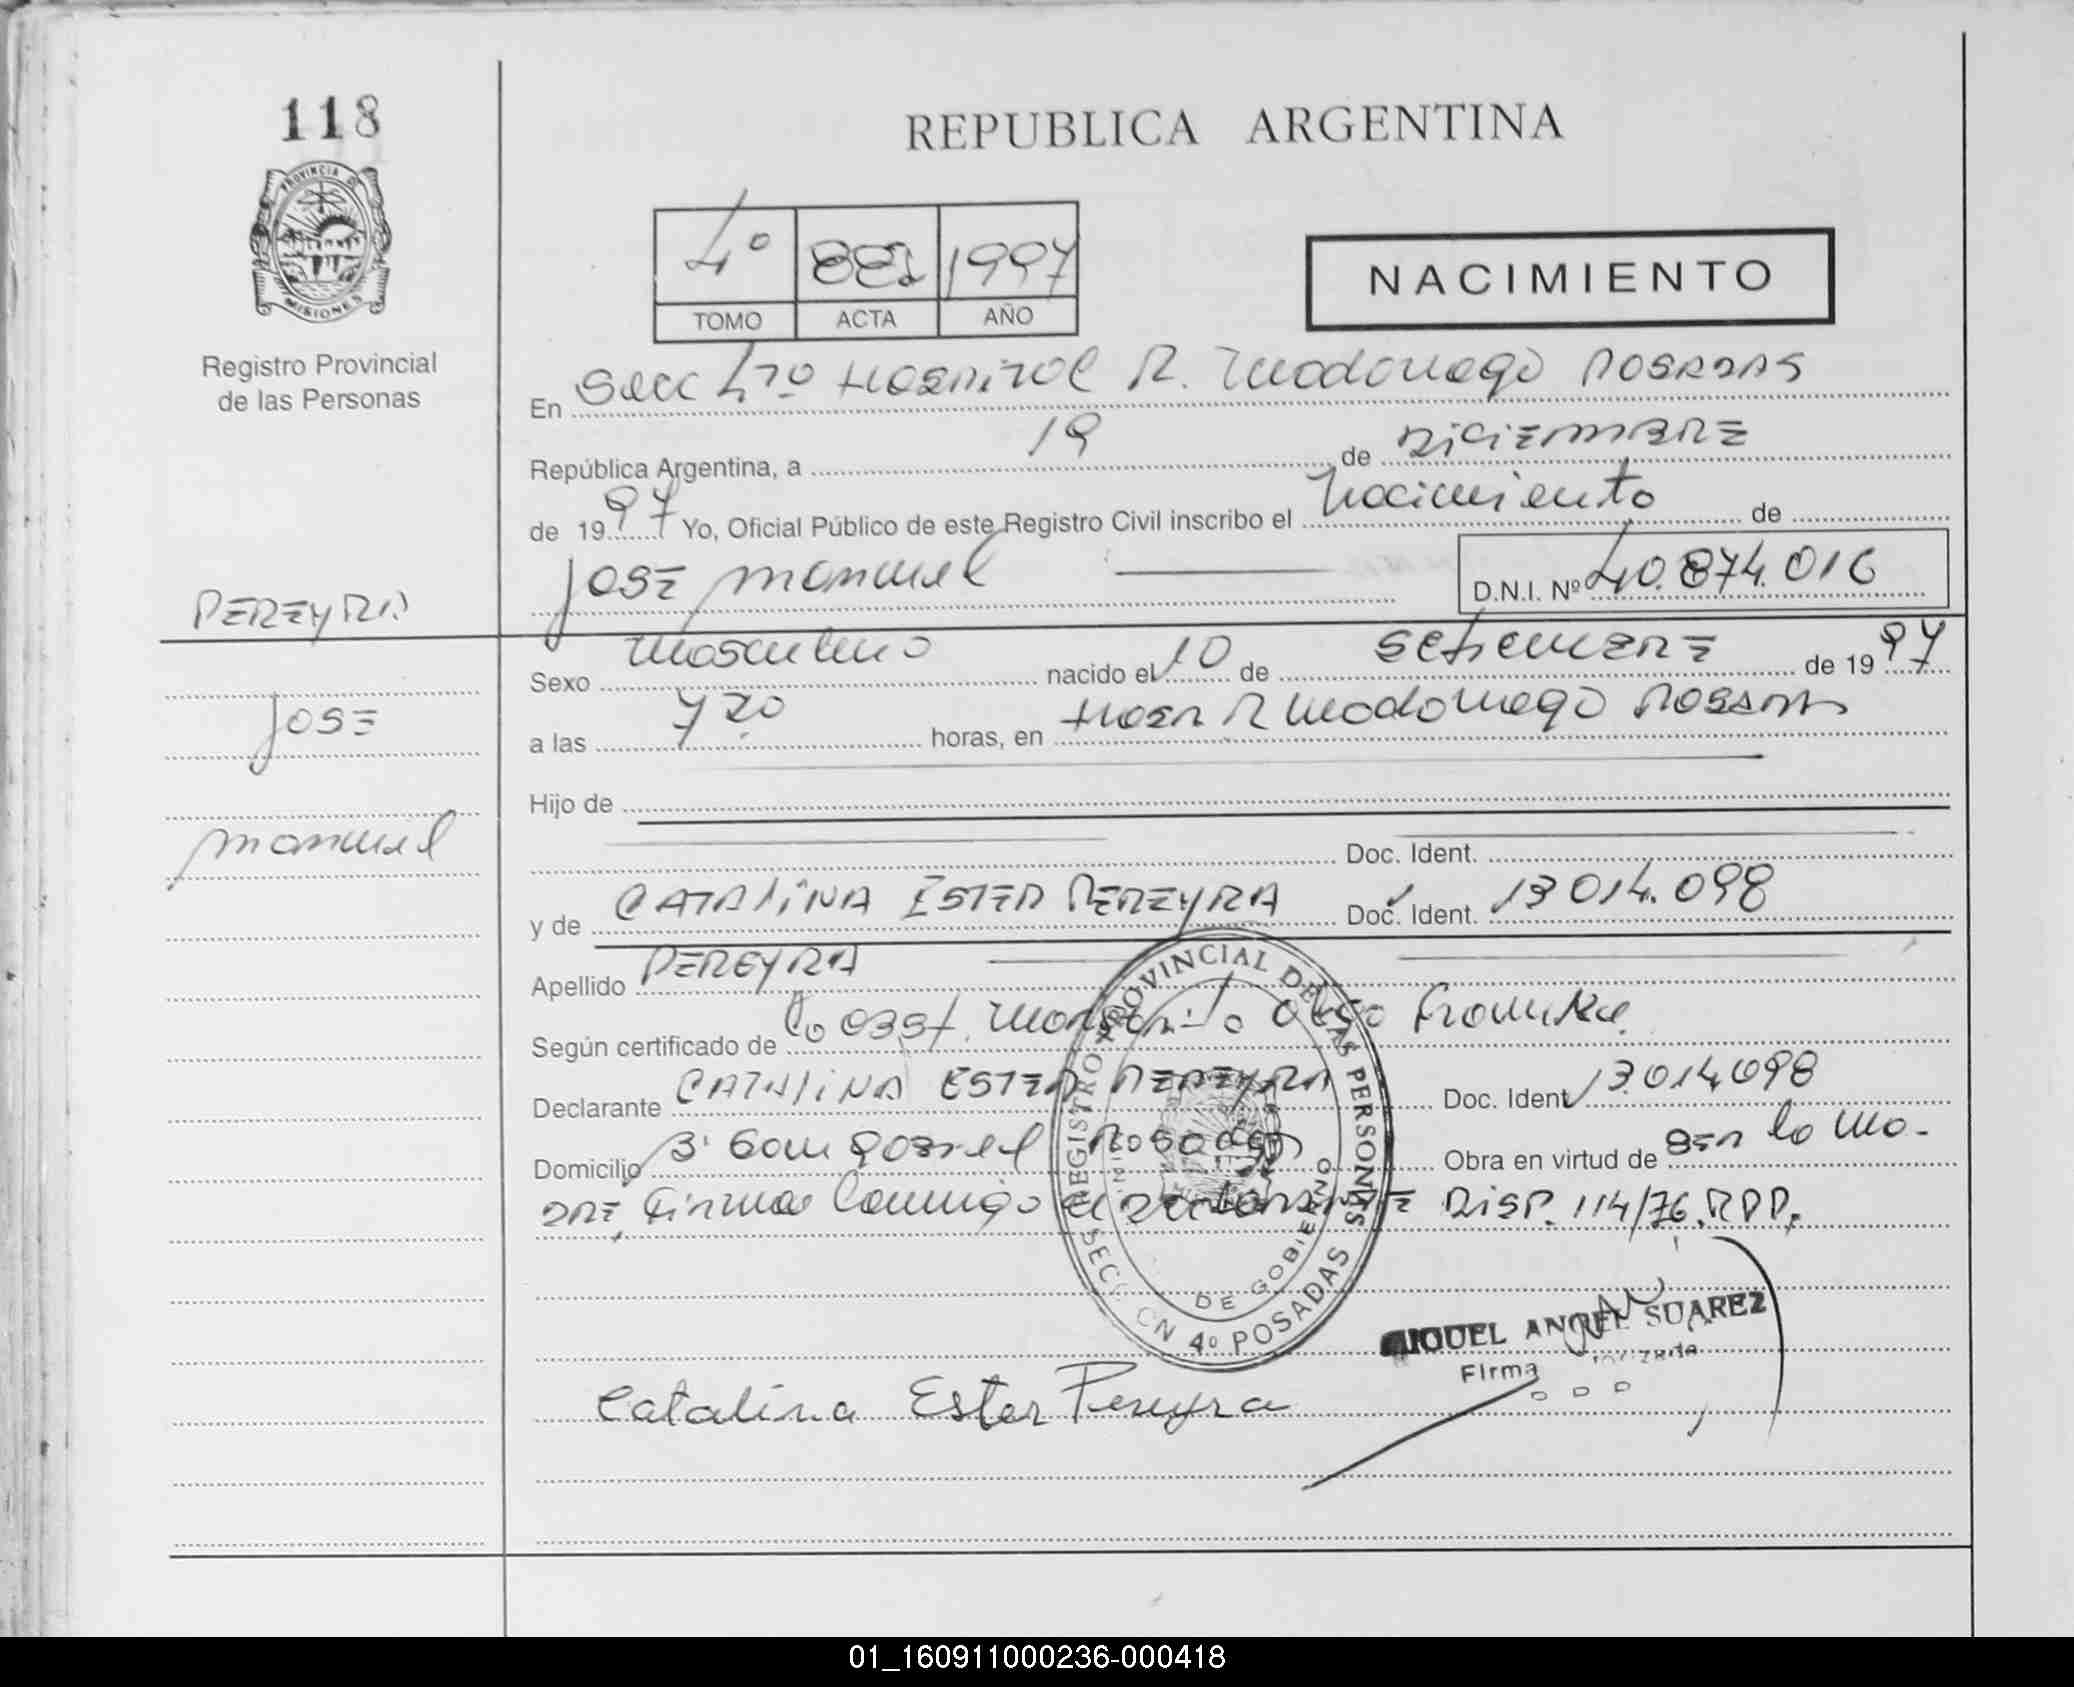 118
REPUBLICA ARGENTINA
PROVINCIA D
MISIONES
Registro Provincial
de las Personas
4º 882 1997
TOMO ACTA AÑO
NACIMIENTO
En Secc 4ta Hospital R. Madariaga POSADAS
República Argentina, a 19 de DICIEMBRE
de 1997 Yo, Oficial Público de este Registro Civil inscribo el Nacimiento de
JOSE Manuel D.N.I. Nº 40.874.016
PEREYRA
JOSE
Manuel
Sexo Masculino nacido el 10 de SETIEMBRE de 1997
a las 7 20 horas, en Hosp R Madariaga POSADAS
Hijo de
Doc. Ident.
y de CATALINA ESTER PEREYRA Doc. Ident. 13 014.098
Apellido PEREYRA
Según certificado de la Obst.
Declarante CATALINA ESTER PEREYRA Doc. Ident 13.014.098
Domicilio Posadas Obra en virtud de SER la Ma-
DRE, Firma Conmigo el declarante DISP. 114/76.RPP.
REGISTRO PROVINCIAL DE LAS PERSONAS
DE GOBIERNO
SECCION 4º POSADAS
MIGUEL ANGEL SUAREZ
Firma
Catalina Ester Pereyra
01_160911000236-000418